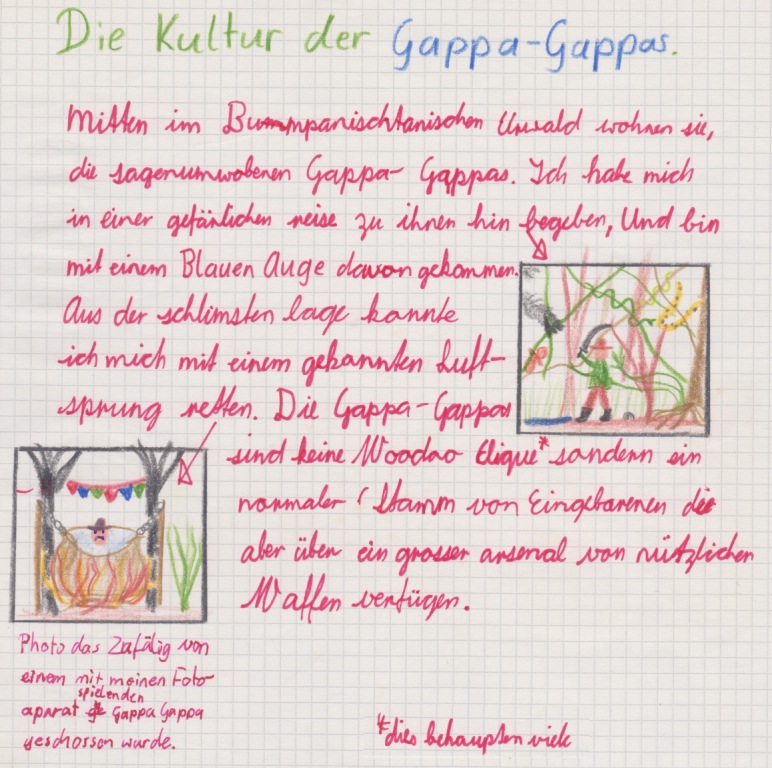 Die Kultur der Gappa-Gappas.
Mitten im Bummpanischtanischen Urwald wohnen sie,
die sagenumwobenen Gappa- Gappas. Ich habe mich
in einer gefänlichen reise zu ihnen hin begeben, Und bin
mit einem Blauen Auge davon gekommen.
Aus der schlimsten lage konnte
ich mich mit einem gekonnten Luft-
sprung retten. Die Gappa-Gappas
sind keine Woodoo Clique* sondern ein
normaler Stamm von Eingeborenen die
aber über ein grosser arsenal von nützlichen
Waffen verfügen.
Photo das Zufälig von
einem mit meinen Foto-
spielenden
aparat Gappa Gappa
geschossen wurde.
*dies behaupten viele